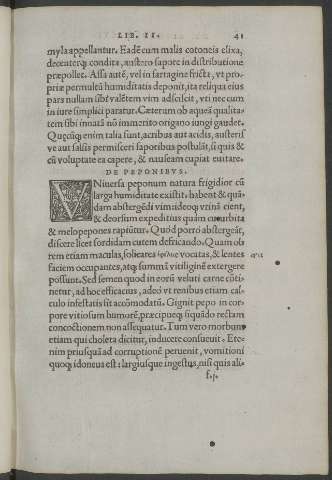 LIB. II. 41
myla appellantur. Eadē cum malis cotoneis elixa,
decenterq; condita, austero sapore in distributione
præpollet. Assa autē, vel in sartagine fricta, vt pro-
priæ permulcū humiditatis deponit, ita reliqua eius
pars nullam sibi valētem vim adsciscit, vti nec cum
in iure simplici paratur. Cæterum ob aqueā qualita-
tem sibi innatā nō immerito origano iungi gaudet.
Quęcūq; enim talia sunt, acribus aut acidis, austeris
ve aut salsis permisceri saporibus postulāt, si quis &
cū voluptate ea capere, & nauseam cupiat euitare.
DE PEPONIBVS.
VNiuersa peponum natura frigidior cū
larga humiditate existit. habent & quā-
dam abstergēdi vim: ideoq; vrinā cient,
& deorsum expeditius quàm cucurbita
& melopepones rapiūtur. Quòd porro abstergeāt,
discere licet sordidam cutem defricando. Quam ob
rem etiam maculas, soliceares vocatas, & lentes
faciem occupantes, atq; summā vitiliginē extergere
possunt. Sed semen quod in eorū veluti carne cōti-
netur, ad hoc efficacius, adeò vt renibus etiam cal-
culo infestatis sit accōmodatū. Gignit pepo in cor-
pore vitiosum humorē, præcipueq; si quādo rectam
concoctionem non assequatur. Tum vero morbum
etiam qui cholera dicitur, inducere consueuit. Ete-
nim priusquā ad corruptionē peruenit, vomitioni
quoq; idoneus est: largiusque ingestus, nisi quis ali-
f.j.